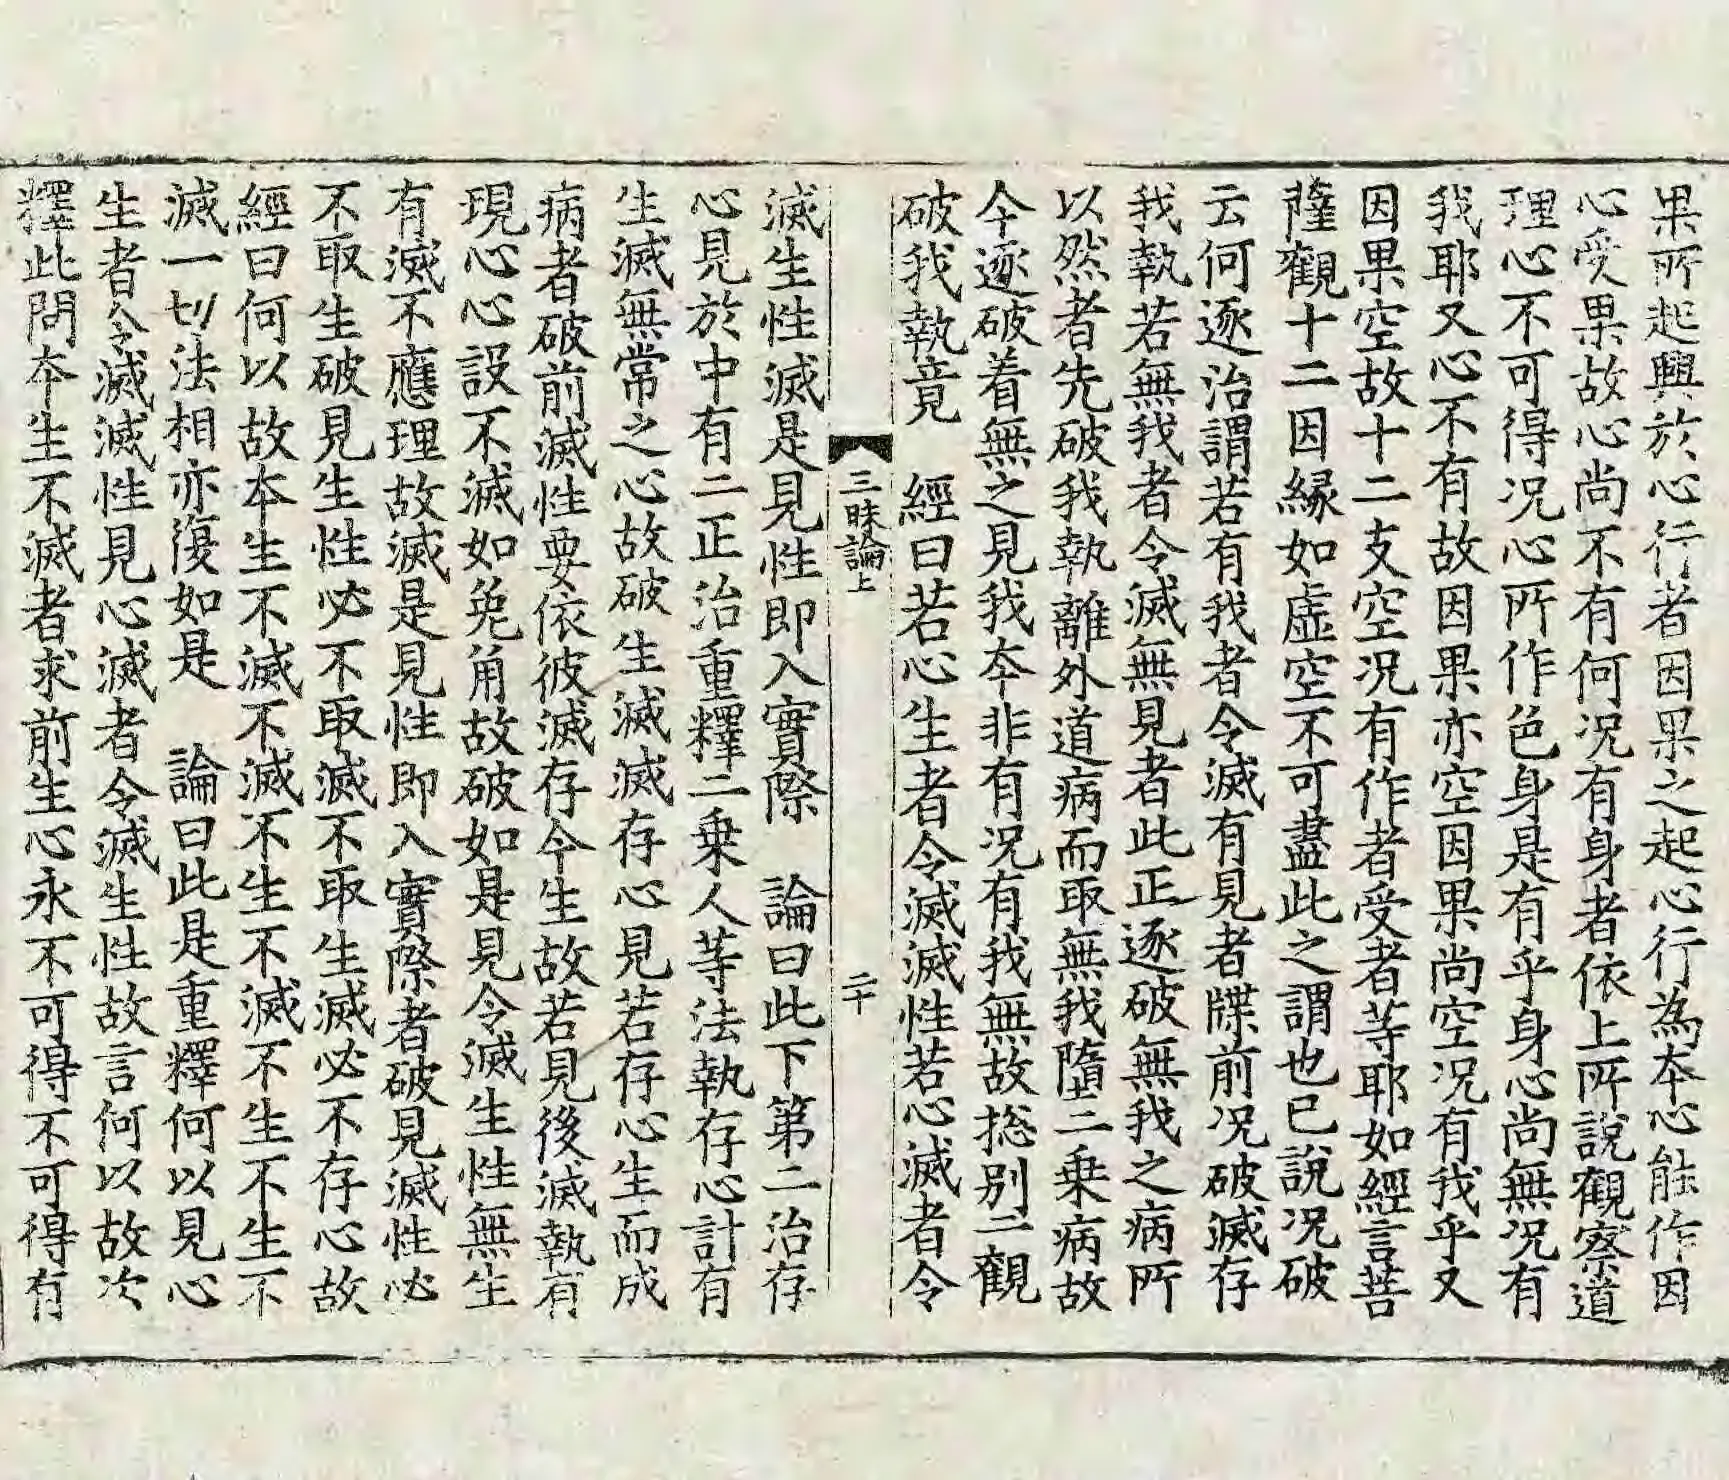 果所起興於心行者因果之起心行為本心能作因
心受果故心尚不有何况有身者依上所說觀察道
理心不可得况心所作色身是有乎身心尚無况有
我耶又心不有故因果亦空因果尚空况有我乎又
因果空故十二支空况有作者受者等耶如經言菩
薩觀十二因緣如虛空不可盡此之謂也已說况破
云何逐治謂若有我者令滅有見者牒前况破滅存
我執若無我者令滅無見者此正逐破無我之病所
以然者先破我執離外道病而取無我墮二乗病故
今逐破着無之見我本非有况有我無故捴別二觀
破我執竟　經曰若心生者令滅滅性若心滅者令
三昧論上　二十
滅生性滅是見性即入實際　論曰此下第二治存
心見於中有二正治重釋二乗人等法執存心計有
生滅無常之心故破生滅滅存心見若存心生而成
病者破前滅性要依彼滅存今生故若見後滅執有
現心心設不滅如兔角故破如是見令滅生性無生
有滅不應理故滅是見性即入實際者破見滅性必
不取生破見生性必不取滅不取生滅必不存心故
經曰何以故本生不滅不滅不生不滅不生不生不
滅一切法相亦復如是　論曰此是重釋何以見心
生者令滅滅性見心滅者令滅生性故言何以故次
釋此問本生不滅者求前生心永不可得不可得有